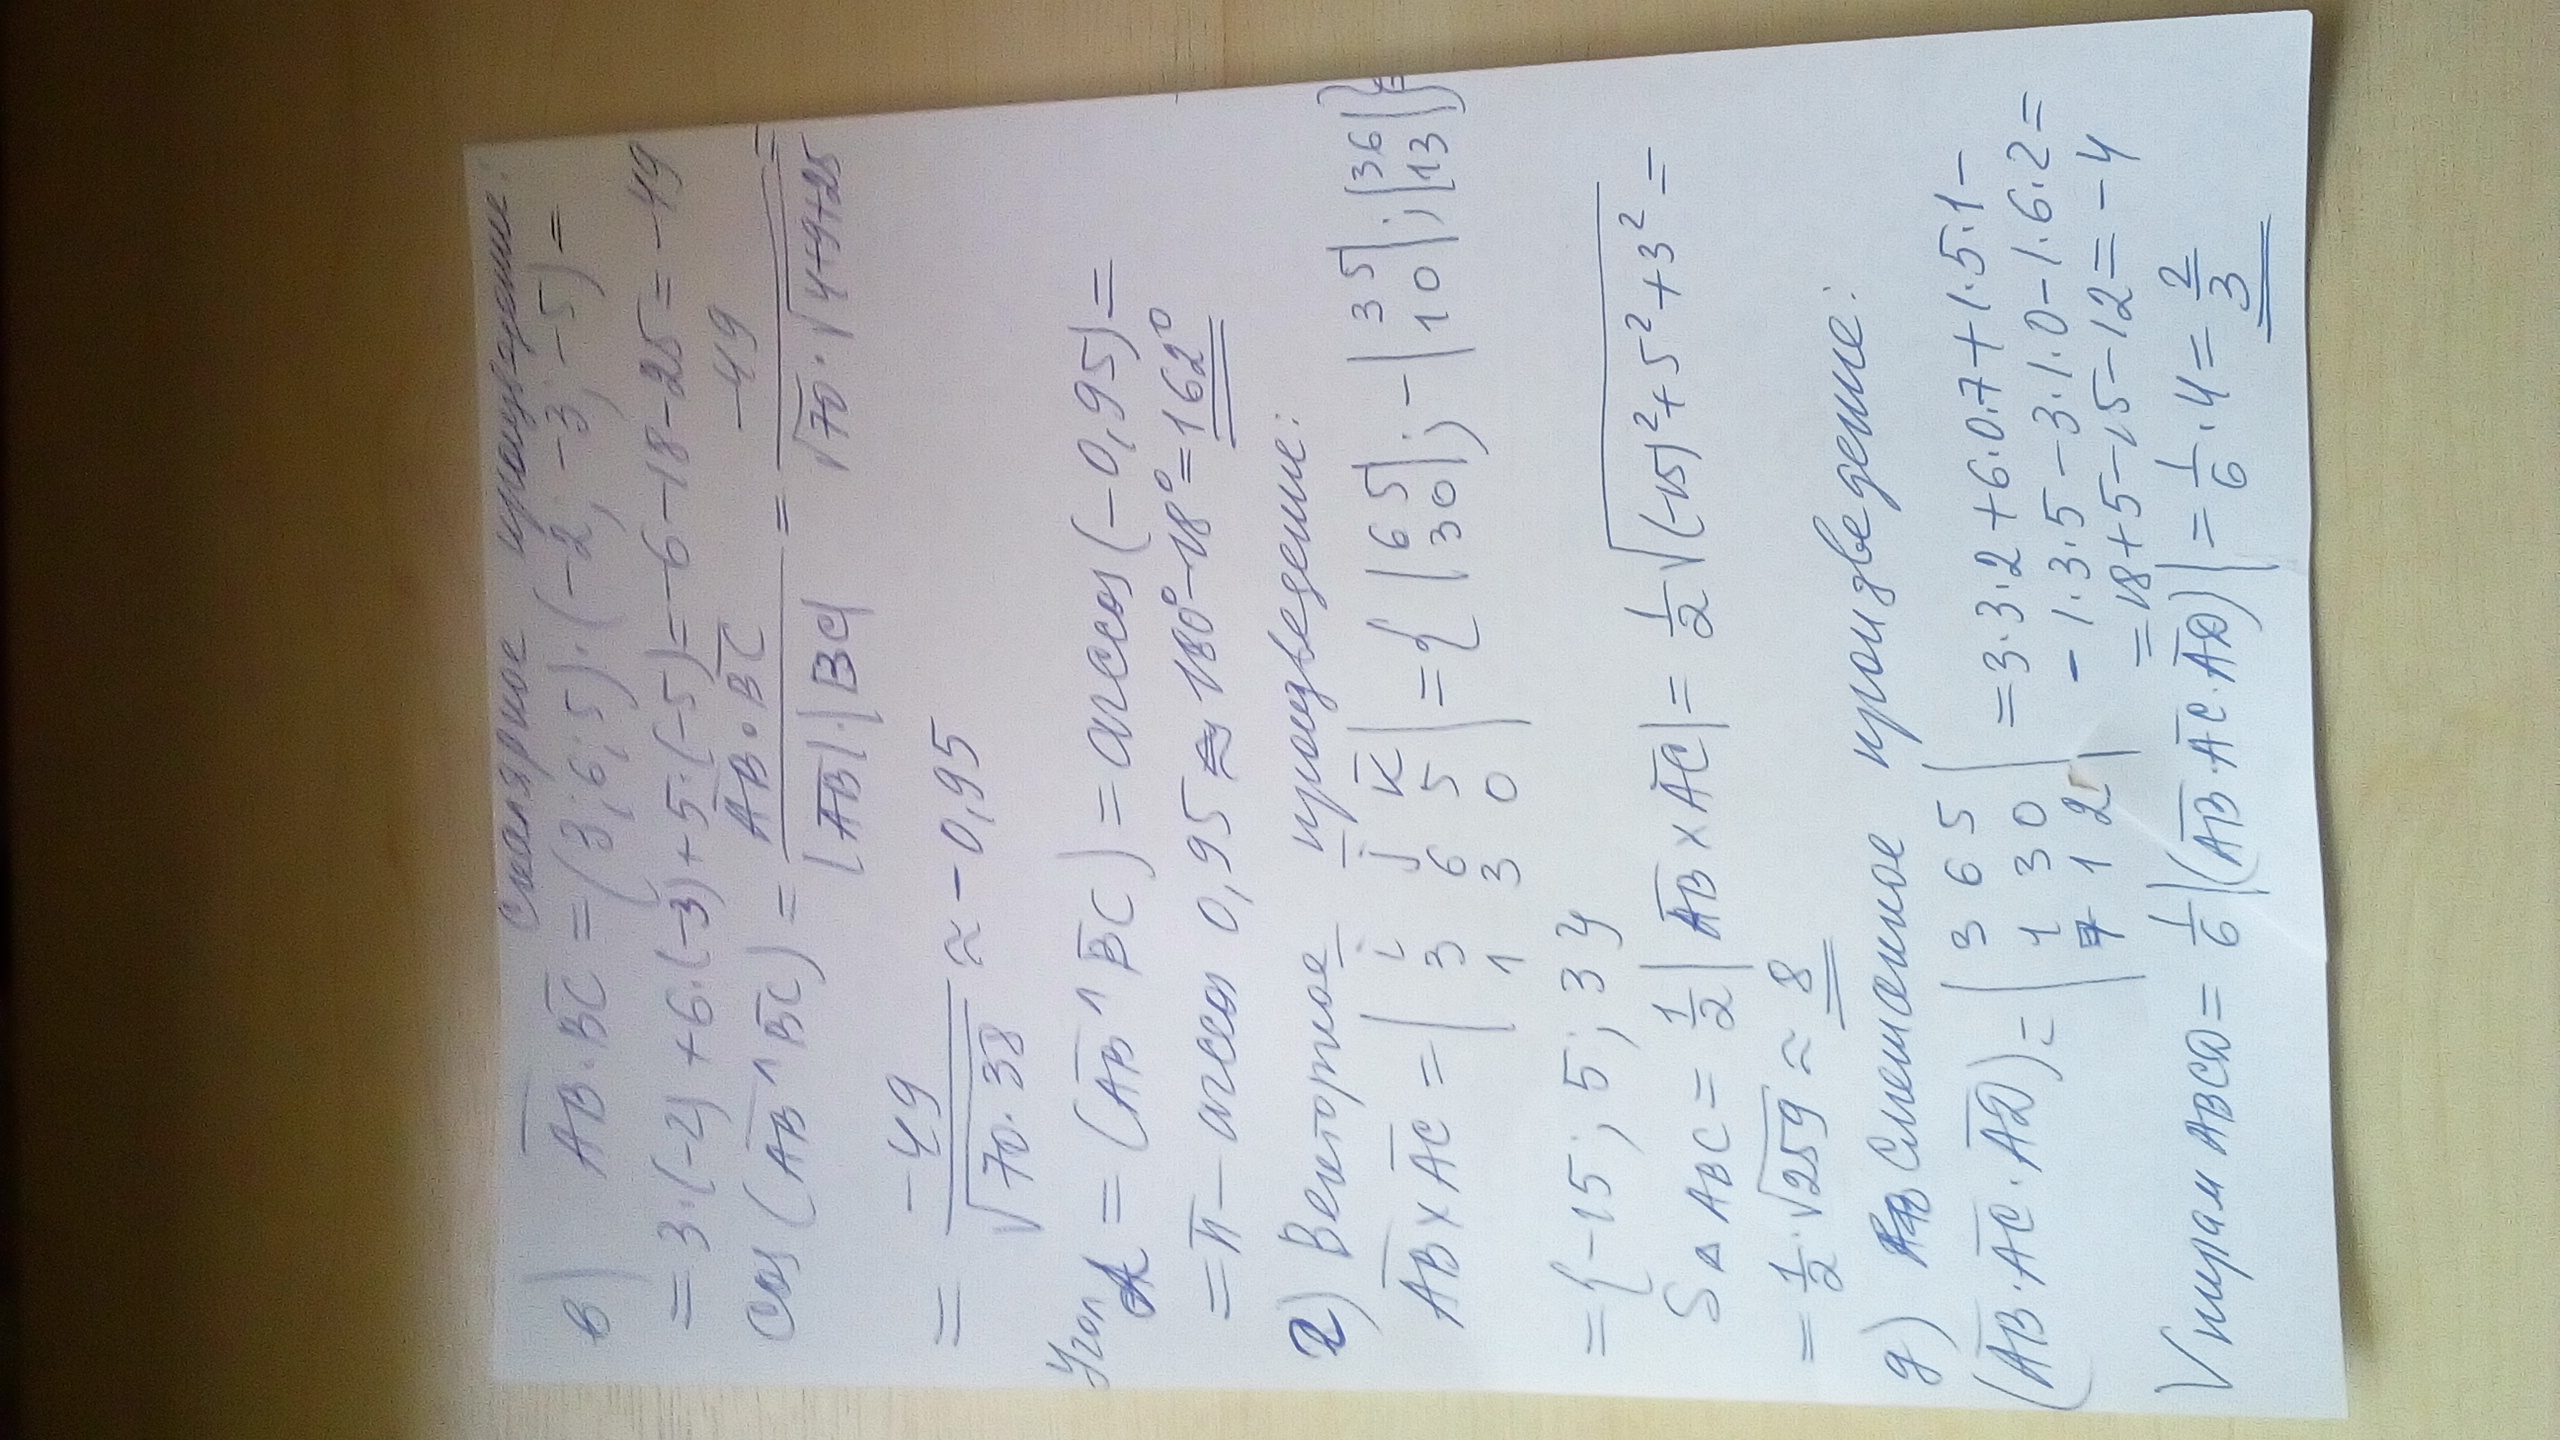 в) Скалярное произведение:
AB·BC = (3; 6; 5)·(-2; -3; -5) =
= 3·(-2) + 6·(-3) + 5·(-5) = -6-18-25 = -49
cos(AB ^ BC) = AB·BC / |AB|·|BC| = -49 / √70·√4+9+25 =
= -49 / √70·38 ≈ -0,95
Угол
A = (AB ^ BC) = arccos(-0,95) =
= π - arccos 0,95 ≈ 180°-18° = 162°
г) Векторное произведение:
AB × AC = | i j k ; 3 6 5 ; 1 3 0 | = { | 6 5 ; 3 0 |; - | 3 5 ; 1 0 |; | 3 6 ; 1 3 | } =
= {-15; 5; 3}
S△ABC = 1/2 |AB × AC| = 1/2 √(-15)²+5²+3² =
= 1/2·√259 ≈ 8
д) Смешанное произведение:
(AB·AC·AD) = | 3 6 5 ; 1 3 0 ; 7 1 2 | = 3·3·2+6·0·7+1·5·1-
- 1·3·5-3·1·0-1·6·2 =
= 18+5-15-12 = -4
V пирам ABCD = 1/6 |(AB·AC·AD)| = 1/6·4 = 2/3